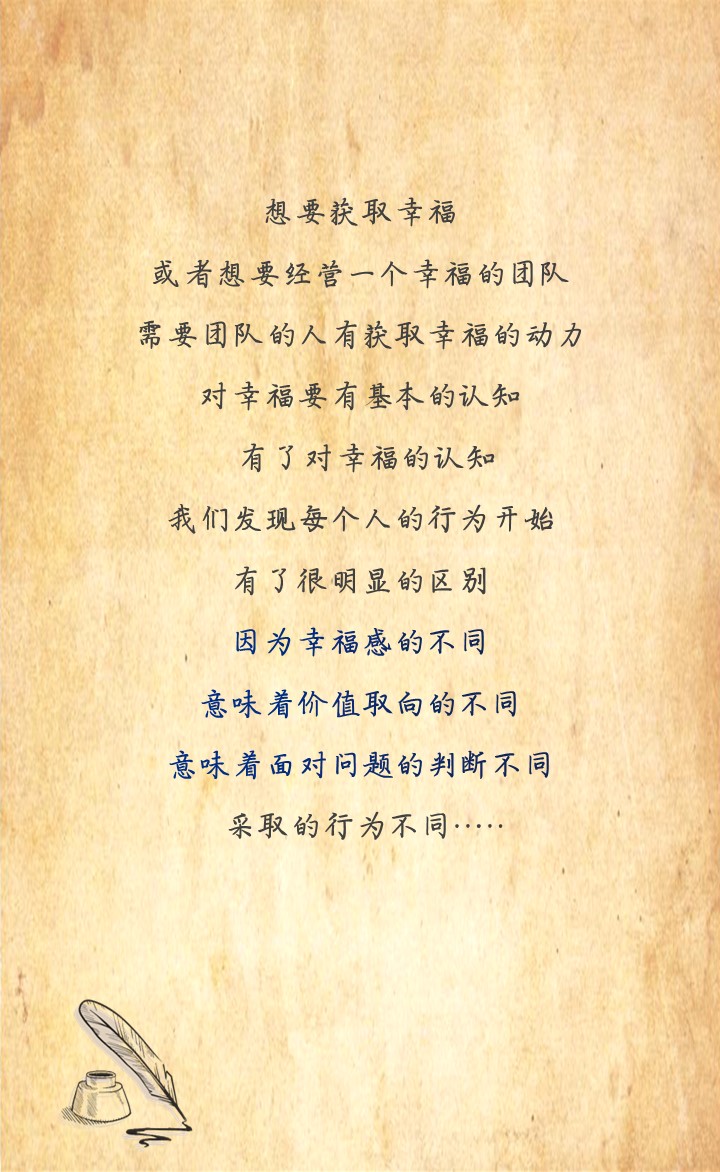 想要获取幸福
或者想要经营一个幸福的团队
需要团队的人有获取幸福的动力
对幸福要有基本的认知
有了对幸福的认知
我们发现每个人的行为开始
有了很明显的区别
因为幸福感的不同
意味着价值取向的不同
意味着面对问题的判断不同
采取的行为不同·····